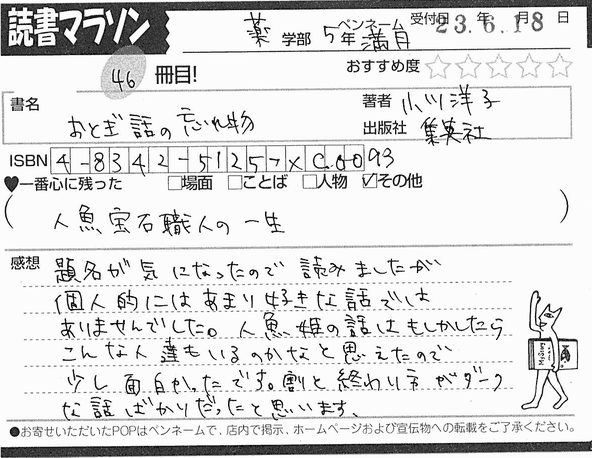 読書マラソン
薬 学部 5年 ペンネーム 満月 受付日 23年6月18日
46 冊目!
おすすめ度 ☆☆☆☆☆
書名 おとぎ話の忘れ物
著者 小川洋子
出版社 集英社
ISBN 4-8342-5125-X C0093
♥一番心に残った □場面 □ことば □人物 ☑その他
(人魚宝石職人の一生)
感想 題名が気になったので読みましたが
個人的にはあまり好きな話では
ありませんでした。人魚姫の話はもしかしたら
こんな人達もいるのかなと思えたので
少し面白かったです。割と終わり方がダーク
な話ばかりだったと思います。
●お寄せいただいたPOPはペンネームで、店内で掲示、ホームページおよび宣伝物への転載をご了承ください。